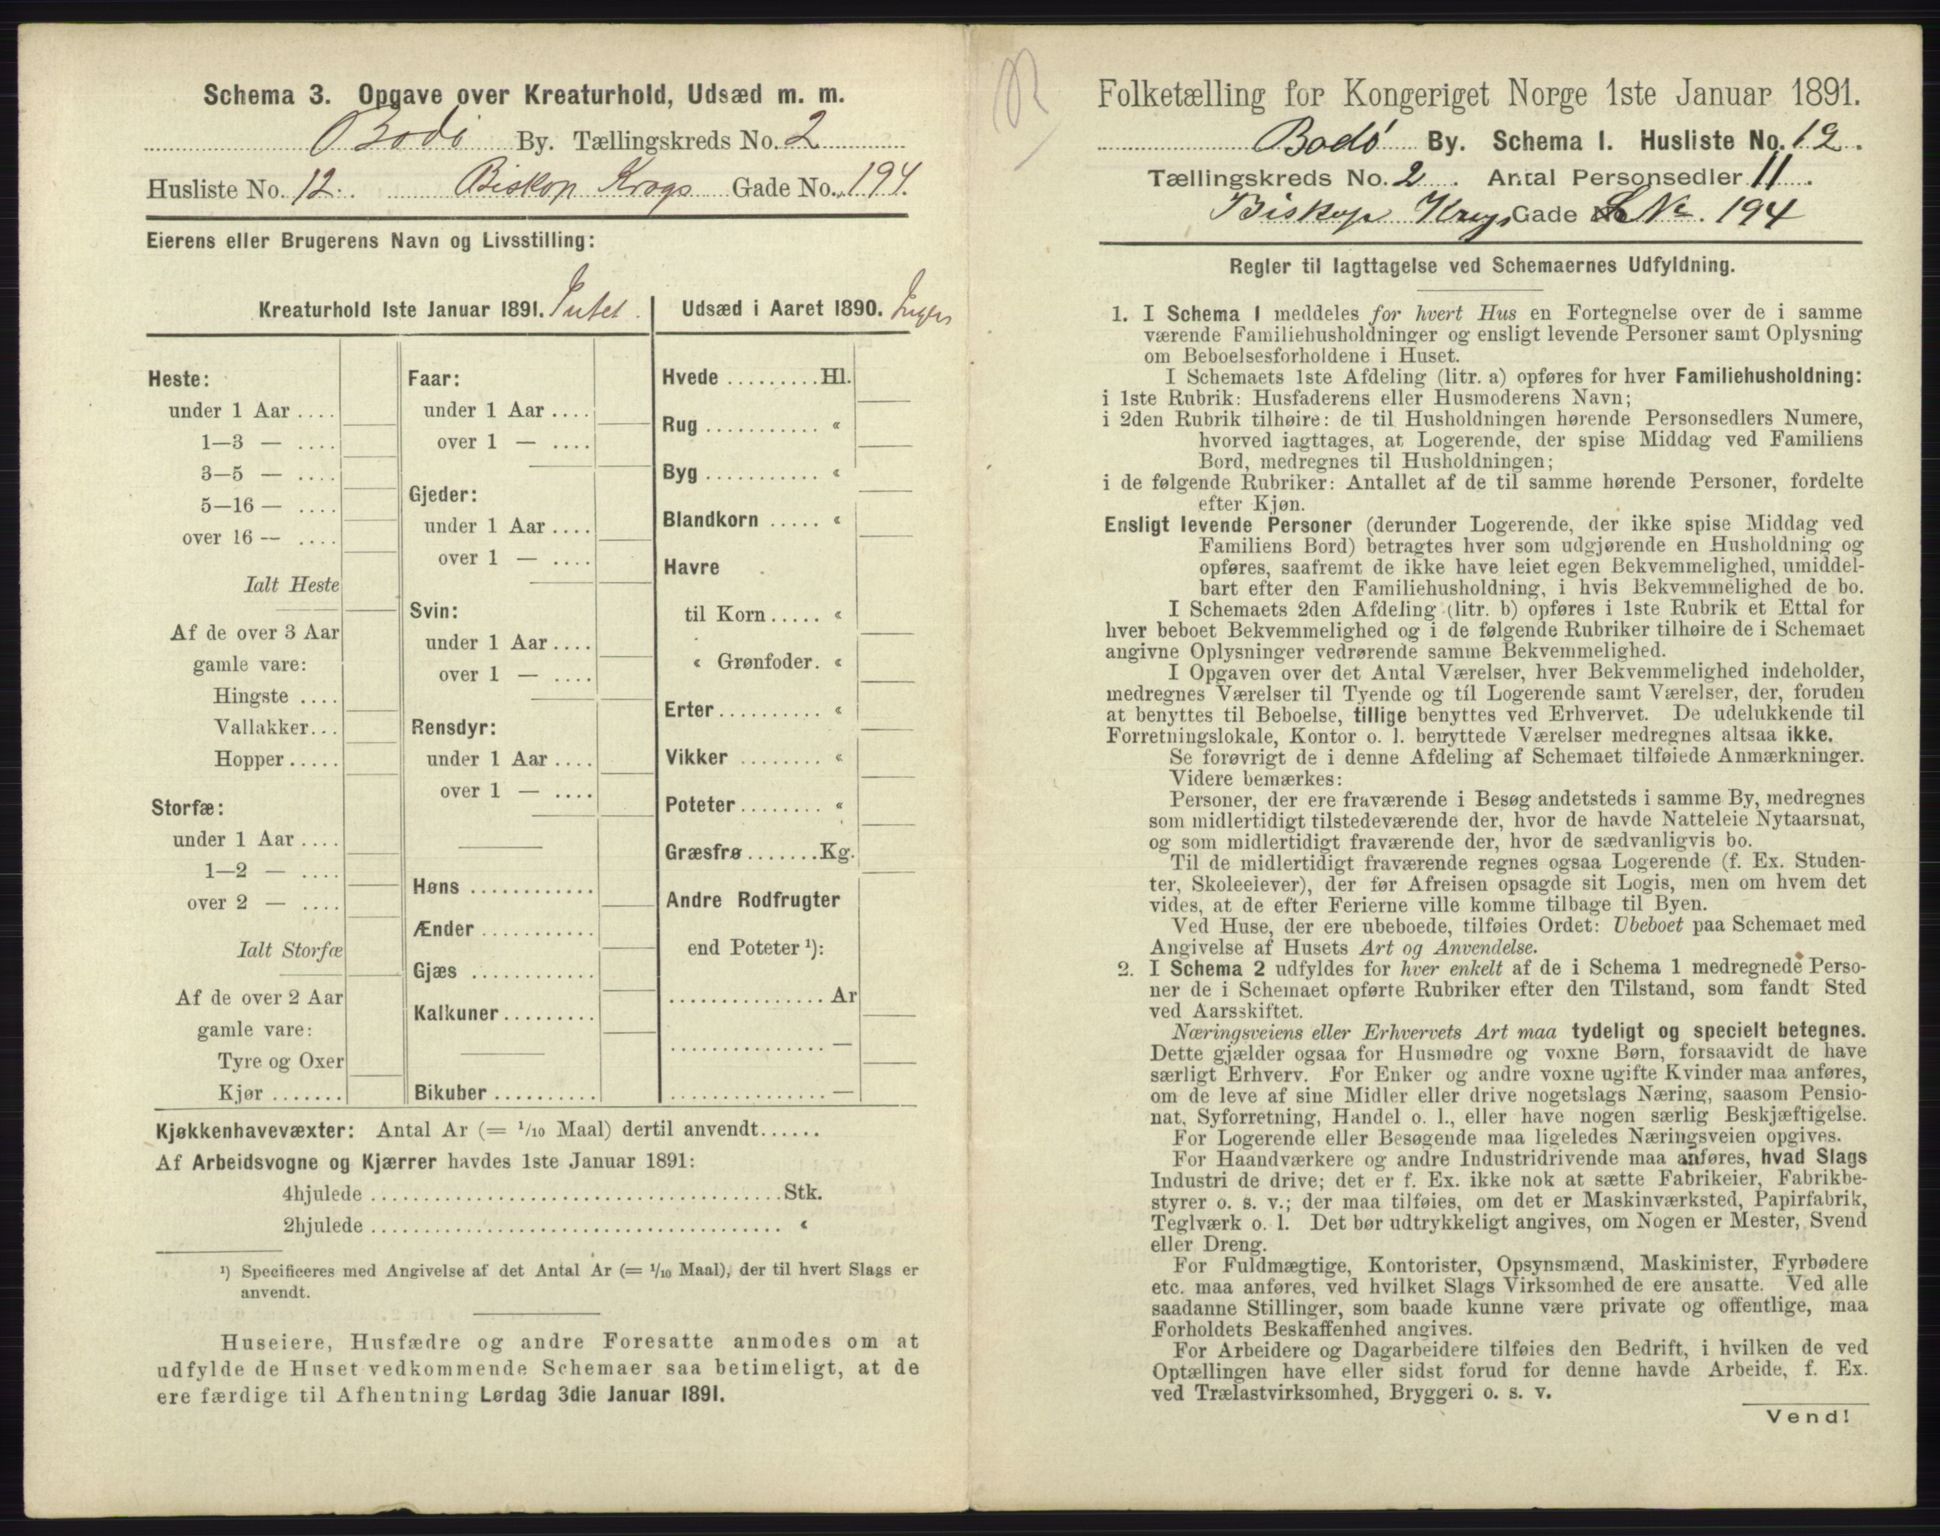 Schema 3. Opgave over Kreaturhold, Udsæd m. m.
Bodö By. Tællingskreds No. 2
Husliste No. 12. Biskop Krogs Gade No. 194.
Eierens eller Brugerens Navn og Livsstilling:
Kreaturhold 1ste Januar 1891. Intet.
Heste:
under 1 Aar ....
1—3 — ....
3—5 — ....
5—16 — ....
over 16 — ....
Ialt Heste
Af de over 3 Aar
gamle vare:
Hingste ....
Vallakker...
Hopper .....
Storfæ:
under 1 Aar ....
1—2 — ....
over 2 — ....
Ialt Storfæ
Af de over 2 Aar
gamle vare:
Tyre og Oxer
Kjør .......
Faar:
under 1 Aar ....
over 1 — ....
Gjeder:
under 1 Aar ....
over 1 — ....
Svin:
under 1 Aar ....
over 1 — ....
Rensdyr:
under 1 Aar ....
over 1 — ....
Høns ............
Ænder ...........
Gjæs ............
Kalkuner .........
Bikuber ..........
Udsæd i Aaret 1890. Ingen
Hvede .........Hl.
Rug ........... «
Byg ........... «
Blandkorn ..... «
Havre
til Korn ..... «
« Grønfoder. «
Erter .......... «
Vikker ........ «
Poteter ........ «
Græsfrø .......Kg.
Andre Rodfrugter
end Poteter ¹):
............... Ar
............... —
............... —
Kjøkkenhavevæxter: Antal Ar (= 1/10 Maal) dertil anvendt......
Af Arbeidsvogne og Kjærrer havdes 1ste Januar 1891:
4hjulede ........................................Stk.
2hjulede ........................................ «
¹) Specificeres med Angivelse af det Antal Ar (= 1/10 Maal), der til hvert Slags er
anvendt.
Huseiere, Husfædre og andre Foresatte anmodes om at
udfylde de Huset vedkommende Schemaer saa betimeligt, at de
ere færdige til Afhentning Lørdag 3die Januar 1891.
Folketælling for Kongeriget Norge 1ste Januar 1891.
Bodö By. Schema I. Husliste No. 12.
Tællingskreds No. 2. Antal Personsedler 11.
Biskop Krogs Gade No. 194
Regler til Iagttagelse ved Schemaernes Udfyldning.
1. I Schema I meddeles for hvert Hus en Fortegnelse over de i samme
værende Familiehusholdninger og ensligt levende Personer samt Oplysning
om Beboelsesforholdene i Huset.
I Schemaets 1ste Afdeling (litr. a) opføres for hver Familiehusholdning:
i 1ste Rubrik: Husfaderens eller Husmoderens Navn;
i 2den Rubrik tilhøire: de til Husholdningen hørende Personsedlers Numere,
hvorved iagttages, at Logerende, der spise Middag ved Familiens
Bord, medregnes til Husholdningen;
i de følgende Rubriker: Antallet af de til samme hørende Personer, fordelte
efter Kjøn.
Ensligt levende Personer (derunder Logerende, der ikke spise Middag ved
Familiens Bord) betragtes hver som udgjørende en Husholdning og
opføres, saafremt de ikke have leiet egen Bekvemmelighed, umiddel-
bart efter den Familiehusholdning, i hvis Bekvemmelighed de bo.
I Schemaets 2den Afdeling (litr. b) opføres i 1ste Rubrik et Ettal for
hver beboet Bekvemmelighed og i de følgende Rubriker tilhøire de i Schemaet
angivne Oplysninger vedrørende samme Bekvemmelighed.
I Opgaven over det Antal Værelser, hver Bekvemmelighed indeholder,
medregnes Værelser til Tyende og til Logerende samt Værelser, der, foruden
at benyttes til Beboelse, tillige benyttes ved Erhvervet. De udelukkende til
Forretningslokale, Kontor o. l. benyttede Værelser medregnes altsaa ikke.
Se forøvrigt de i denne Afdeling af Schemaet tilføiede Anmærkninger.
Videre bemærkes:
Personer, der ere fraværende i Besøg andetsteds i samme By, medregnes
som midlertidigt tilstedeværende der, hvor de havde Natteleie Nytaarsnat,
og som midlertidigt fraværende der, hvor de sædvanligvis bo.
Til de midlertidigt fraværende regnes ogsaa Logerende (f. Ex. Studen-
ter, Skoleeiever), der før Afreisen opsagde sit Logis, men om hvem det
vides, at de efter Ferierne ville komme tilbage til Byen.
Ved Huse, der ere ubeboede, tilføies Ordet: Ubeboet paa Schemaet med
Angivelse af Husets Art og Anvendelse.
2. I Schema 2 udfyldes for hver enkelt af de i Schema 1 medregnede Perso-
ner de i Schemaet opførte Rubriker efter den Tilstand, som fandt Sted
ved Aarsskiftet.
Næringsveiens eller Erhvervets Art maa tydeligt og specielt betegnes.
Dette gjælder ogsaa for Husmødre og voxne Børn, forsaavidt de have
særligt Erhverv. For Enker og andre voxne ugifte Kvinder maa anføres,
om de leve af sine Midler eller drive nogetslags Næring, saasom Pensio-
nat, Syforretning, Handel o. l., eller have nogen særlig Beskjæftigelse.
For Logerende eller Besøgende maa ligeledes Næringsveien opgives.
For Haandværkere og andre Industridrivende maa anføres, hvad Slags
Industri de drive; det er f. Ex. ikke nok at sætte Fabrikeier, Fabrikbe-
styrer o. s. v.; der maa tilføies, om det er Maskinværksted, Papirfabrik,
Teglværk o. l. Det bør udtrykkeligt angives, om Nogen er Mester, Svend
eller Dreng.
For Fuldmægtige, Kontorister, Opsynsmænd, Maskinister, Fyrbødere
etc. maa anføres, ved hvilket Slags Virksomhed de ere ansatte. Ved alle
saadanne Stillinger, som baade kunne være private og offentlige, maa
Forholdets Beskaffenhed angives.
For Arbeidere og Dagarbeidere tilføies den Bedrift, i hvilken de ved
Optællingen have eller sidst forud for denne havde Arbeide, f. Ex.
ved Trælastvirksomhed, Bryggeri o. s. v.
Vend!